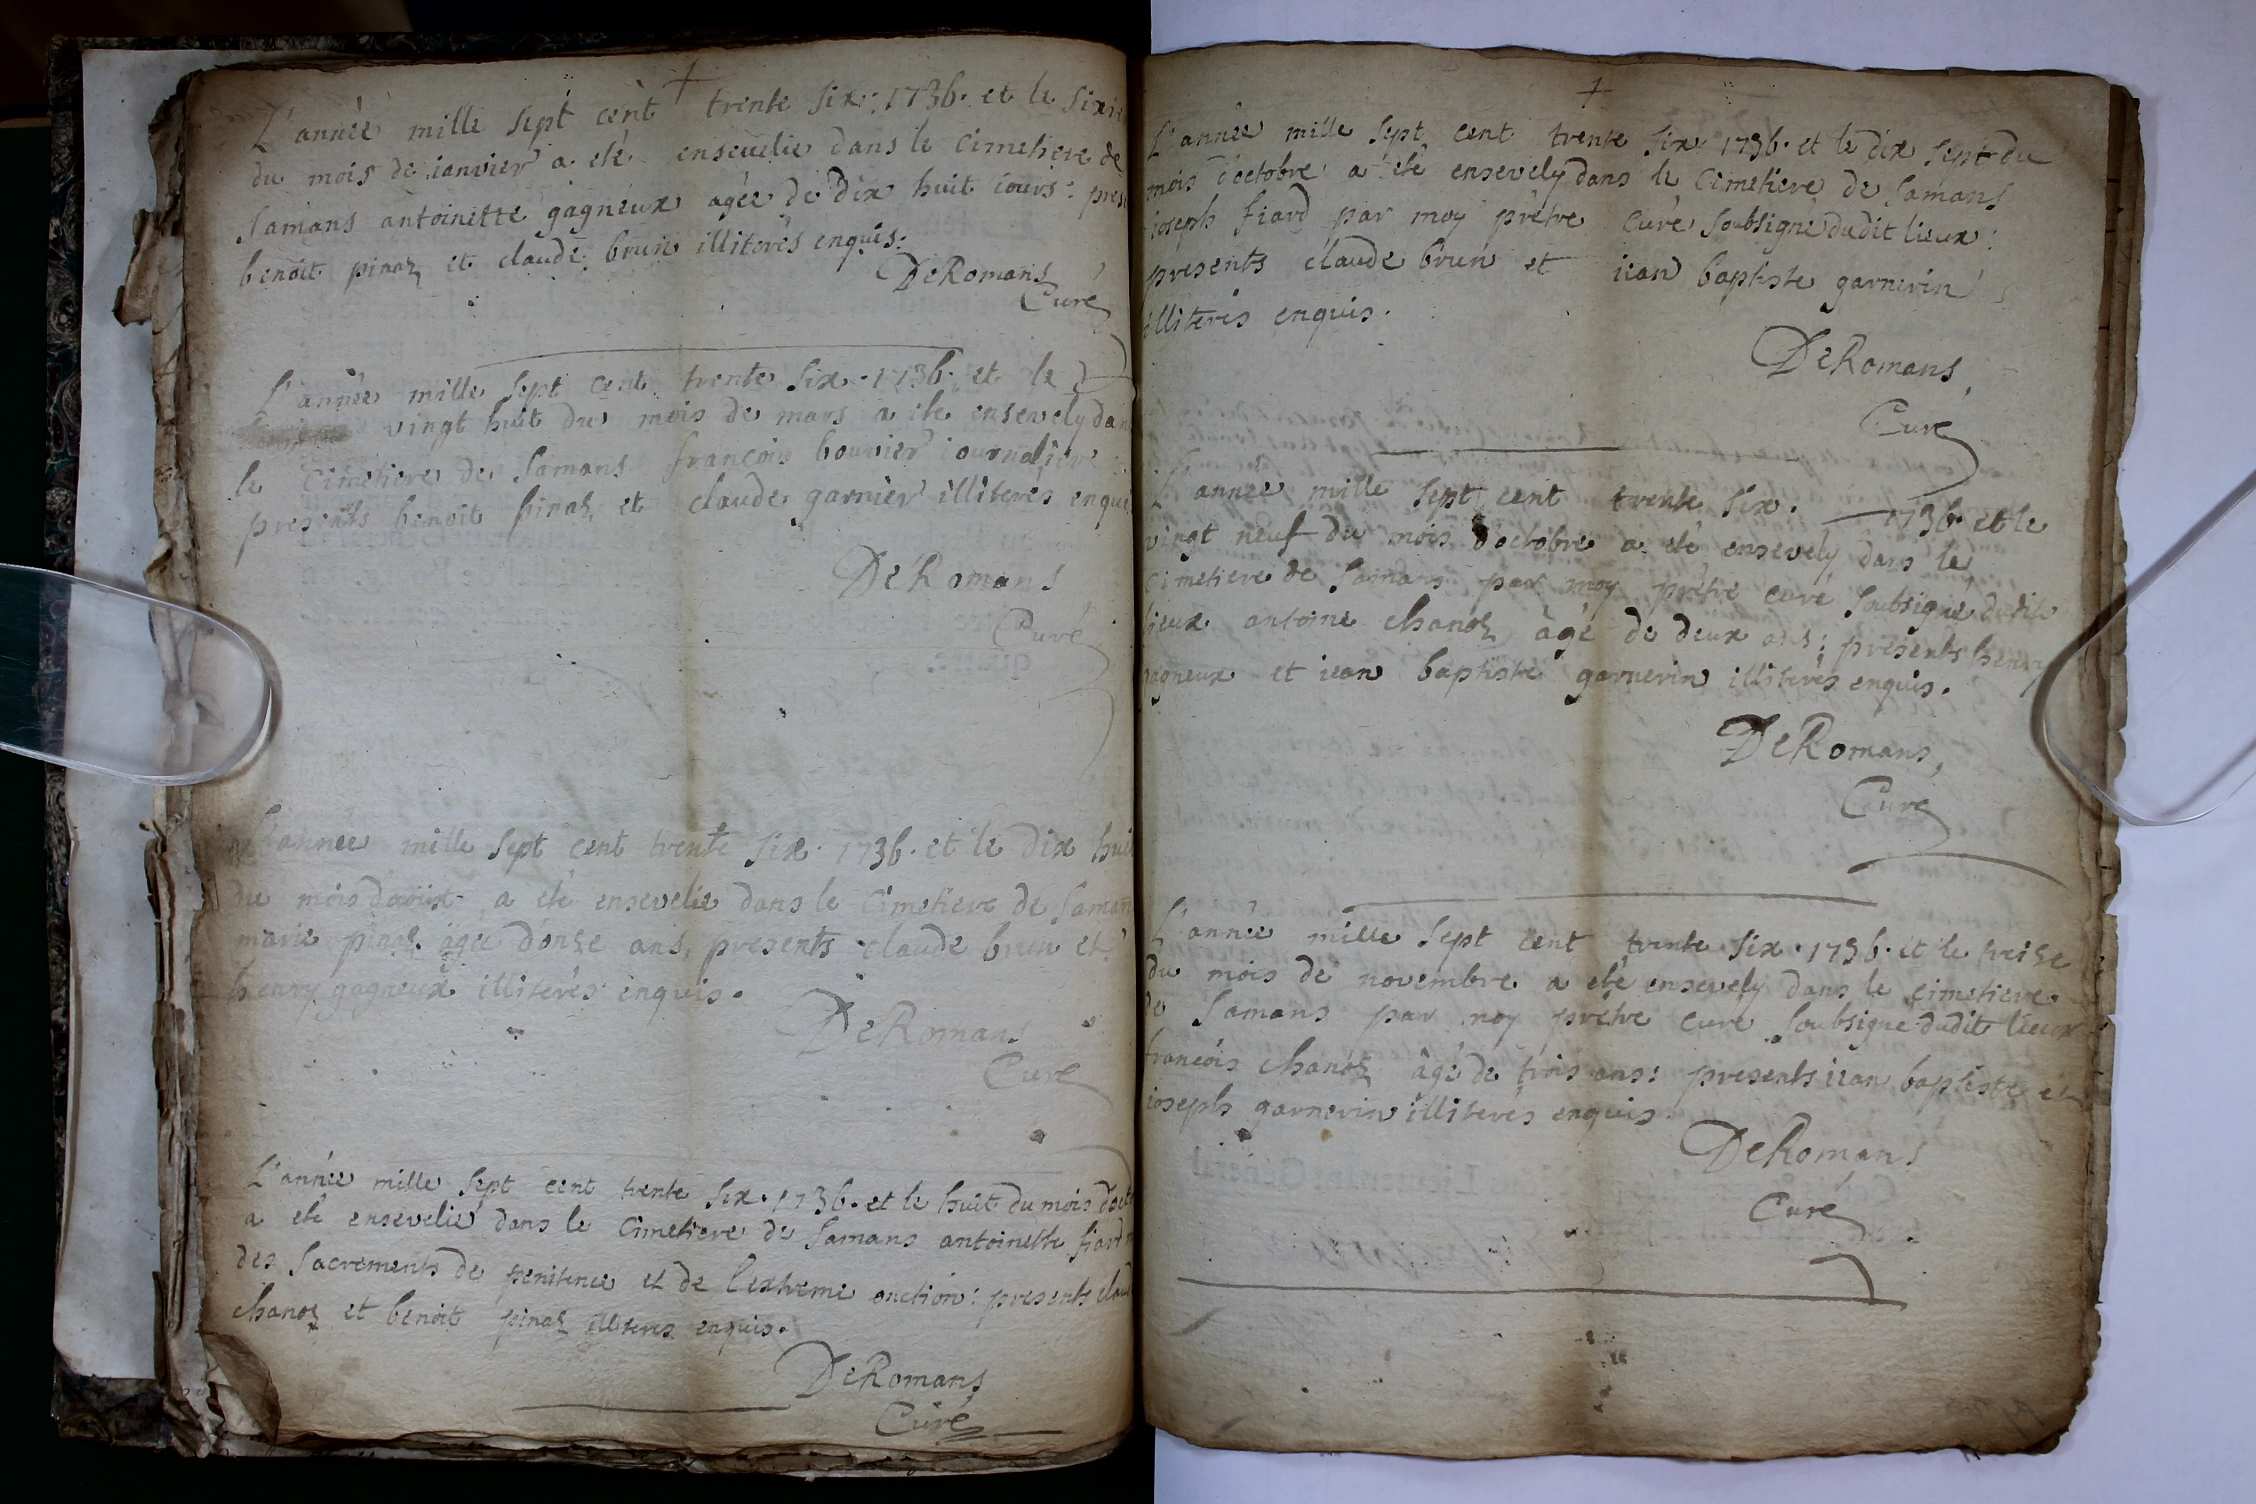 L'année mille sept cent trente six : 1736 · et le sixie
du mois de ianvier a eté ensevelie dans le cimetiere de
samans antoinette gagneux agée de dix huit iours : pres
benoit pinaz et claude brun illiterés enquis.
DeRomans
Curé
L'année mille sept cent trente six · 1736 · et le
vingt huit du mois de mars a eté ensevely dan
le cimetiere de samans françois bouvier iournalier
presents benoit pinaz et claude garnier illiterés enqui
DeRomans
Curé
L'année mille sept cent trente six · 1736 · et le dix hui
du mois daoust a eté ensevelie dans le cimetiere de saman
marie pinaz agée donze ans, presents claude brun et
henry gagneux illiterés enquis.
DeRomans
Curé
L'année mille sept cent trente six · 1736 · et le huit du mois d'oct
a eté ensevelie dans le cimetiere de samans antoinette fiard
des sacrements de penitence et de l'extreme onction : presents claud
chanoz et benoit pinaz illiterés enquis.
DeRomans
Curé
L'année mille sept cent trente six · 1736 · et le dix sept du
mois d'octobre a eté ensevely dans le cimetiere de samans
ioseph fiard par moy prêtre curé soubsigné dudit lieux :
presents claude brun et iean baptiste garnerin
illiterés enquis.
DeRomans,
Curé
L'année mille sept cent trente six · 1736 · et le
vingt neuf du mois d'octobre a eté ensevely dans le
cimetiere de samans par moy prêtre curé soubsigné dudit
lieux antoine chanoz âgé de deux ans : presents henry
gagneux et iean baptiste garnerin illiterés enquis.
DeRomans,
Curé
L'année mille sept cent trente six · 1736 · et le treize
du mois de novembre a eté ensevely dans le cimetiere
de samans par moy prêtre curé soubsigné dudit lieux
françois chanoz âgé de trois ans : presents iean baptiste et
ioseph garnerin illiterés enquis.
DeRomans
Curé